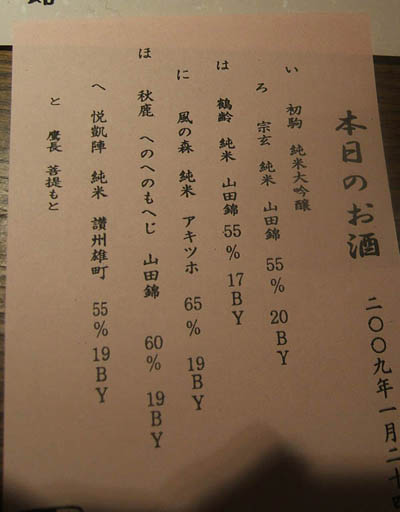 本日のお酒
二〇〇九年一月二十四
い 初駒 純米大吟醸
ろ 宗玄 純米 山田錦 55% 20BY
は 鶴齢 純米 山田錦 55% 17BY
に 風の森 純米 アキツホ 65% 19BY
ほ 秋鹿 へのへのもへじ 山田錦 60% 19BY
へ 悦凱陣 純米 讃州雄町 55% 19BY
と 鷹長 菩提もと